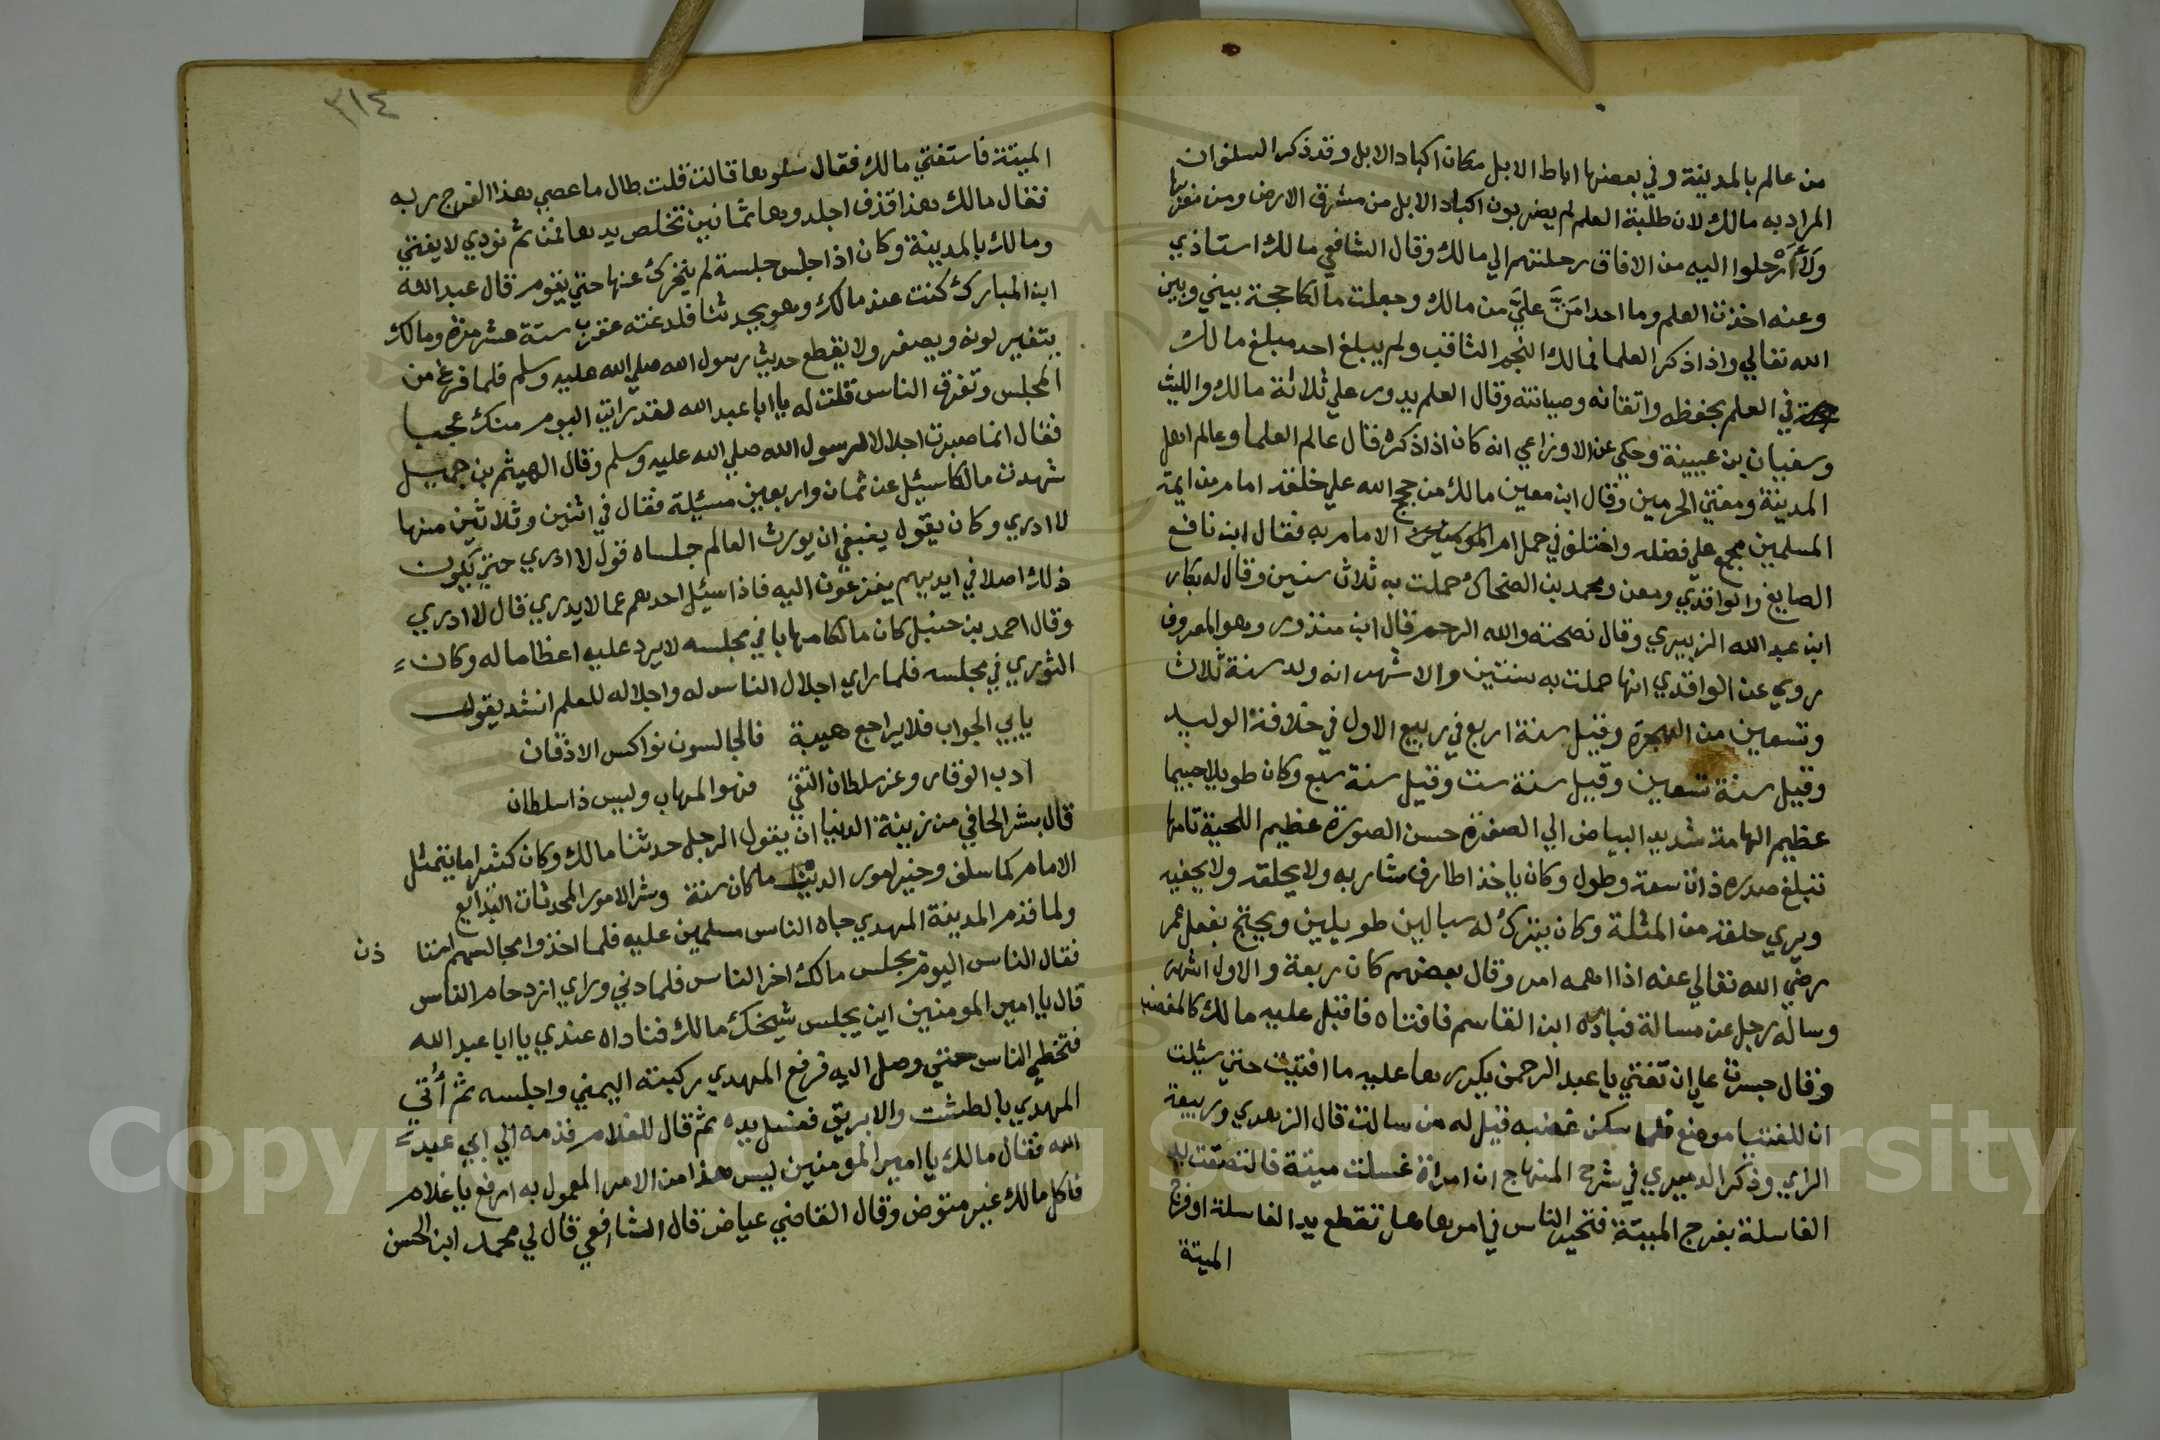 من عالم بالمدينة وفي بعضها اباط الابل مكان اكباد الابل وقد ذكر السلف ان
المراد به مالك لان طلبة العلم لم يضربون اكباد الابل من مشرق الارض ومن مغربها
ولا رحلوا اليه من الافاق رحلتهم الي مالك وقال الشافعي مالك استاذي
وعنه اخذت العلم وما احد امَنَّ عليَّ من مالك وجعلت مالكا حجة بيني وبين
الله تعالي واذا ذكر العلما فمالك النجم الثاقب ولم يبلغ احد مبلغ مالك
في العلم بحفظه واتقانه وصيانته وقال العلم يدور علي ثلاثة مالك والليث
وسفيان بن عيينة وحكي عن الاوزاعي انه كان اذا ذكره قال عالم العلما وعالم اهل
المدينة ومفتي الحرمين وقال ابن معين مالك من حجج الله علي خلقه امام من ايمة
المسلمين مجمع علي فضله واختلف في حمل ام الامام به فقال ابن نافع
الصايغ والواقدي ومعن ومحمد بن الضحاك حملت به ثلاث سنين وقال له بكار
ابن عبد الله الزبيري وقال نضحته والله الرحم قال ابن منذور وهو المعروف
روي عن الواقدي انها حملت به سنتين والاشهر انه ولد سنة ثلاث
وتسعين من الهجرة وقيل سنة اربع في ربيع الاول في خلافة الوليد
وقيل سنة تسعين وقيل سنة ست وقيل سنة سبع وكان طويلا جسيما
عظيم الهامة شديد البياض الي الصفرة حسن الصورة عظيم اللحية تامها
تبلغ صدره ذات سعة وطول وكان ياخذ اطارف شاربه ولا يحلقه ولا يحفيه
ويري حلقه من المثلة وكان يترك له سبالين طويلين ويحتج بفعل عمر
رضي الله تعالي عنه اذا اهمه امر وقال بعضهم كان ربعة والاول اشهر
وساله رجل عن مسالة فبادره ابن القاسم فافتاه فاقبل عليه مالك كالمغضب
وقال جسرت علي ان تفتي يا عبد الرحمن يكررها عليه ما افتيت حتي سئلت
ان للفتيا موضع فلما سكن غضبه قيل له من سالت قال الزهدي وربيعة
الراي وذكر الدميري في شرح المنهاج ان امراة غسلت ميتة فالتصقت يد
الغاسلة بفرج الميتة فتحير الناس في امرها هل تقطع يد الغاسلة او فرج
الميتة
٣١٤
الميتة فاستفتي مالك فقال سلوها قالت قلت طال ما عصي هذا الفرج ربه
فقال مالك هذا قذف اجلدوها ثمانين تتخلص يدها فمن ثم نودي لا يفتي
ومالك بالمدينة وكان اذا جلس جلسة لم يتحرك عنها حتي يقوم قال عبد الله
ابن المبارك كنت عند مالك وهو يحدثنا فلدغته عقرب ستة عشر مرة ومالك
يتغير لونه ويصفر ولا يقطع حديث رسول الله صلي الله عليه وسلم فلما فرغ من
المجلس وتفرق الناس قلت له يا ابا عبد الله لقد رايت اليوم منك عجبا
فقال انما صبرت اجلالا لرسول الله صلي الله عليه وسلم وقال الهيثم بن جميل
شهدت مالكا سيئل عن ثمان واربعين مسئلة فقال في اثنين وثلاثين منها
لا ادري وكان يقول ينبغي ان يورث العالم جلساه قول لا ادري حتي يكون
ذلك اصلا في ايديهم يفزعون اليه فاذا سيئل احدهم عما لا يدري قال لا ادري
وقال احمد بن حنبل كان مالكا مهابا في مجلسه لا يرد عليه اعظاما له وكان
الثوري في مجلسه فلما راي اجلال الناس له واجلاله للعلم انشد يقول
يابي الجواب فلا يراجع هيبة فالجالسون نواكس الاذقان
ادب الوقار وعز سلطان التقي فهو المهاب وليس ذا سلطان
قال بشر الحافي من زينة الدنيا ان يقول الرجل حدثنا مالك وكان كثيرا ما يتمثل
الامام كما سلف وخير امور الدين ما كان سنة وشر الامور المحدثات البدايع
ولما قدم المدينة المهدي جاه الناس مسلمين عليه فلما اخذوا مجالسهم استا ذن
فقال الناس اليوم يجلس مالك اخر الناس فلما دني وراي ازدحام الناس
قال يا امير المومنين اين يجلس شيخك مالك فناداه عندي يا ابا عبد الله
فتخطي الناس حتي وصل اليه فرفع المهدي ركبته اليمني واجلسه ثم أُتي
المهدي بالطشت والابريق فغسل يده ثم قال للغلام قدمه الي ابي عبد
الله فقال مالك يا امير المومنين ليس هذا من الامر المعمول به ارفع يا غلام
فاكل مالك غير متوض وقال القاضي عياض قال الشافعي قال لي محمد ابن الحسن
Copyright © King Saud University